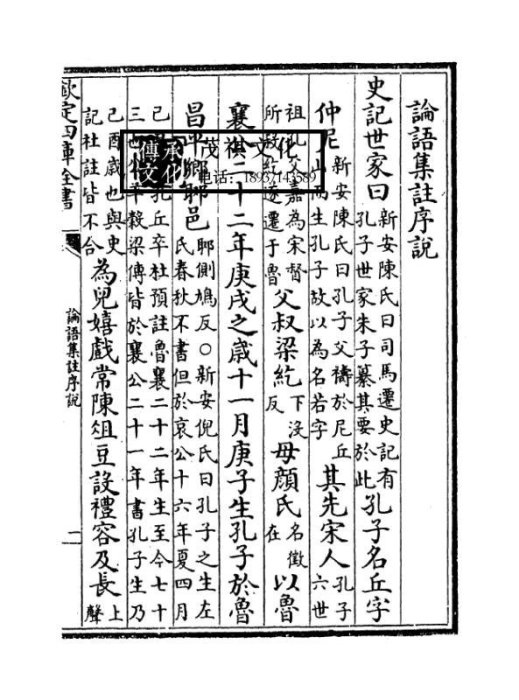 論語集註序說
史記世家曰
新安陳氏曰司馬遷史記有
孔子世家朱子纂其要於此
孔子名丘字
仲尼
新安陳氏曰孔子父禱於尼丘
山而生孔子故以為名若字
其先宋人
孔子
六世
祖孔嘉為宋督
所殺紇遂遷于魯
父叔梁紇
下沒
反
母顏氏
名徵
在
以魯
襄二十二年庚戌之歳十一月庚子生孔子於魯
昌平鄉鄹邑
鄹側鳩反○新安倪氏曰孔子之生左
氏春秋不書但於哀公十六年夏四月
己孔丘卒杜預註魯襄二十二年生至今七十
三也榖梁傳皆於襄公二十一年書孔子生乃
己酉歳也與史
記杜註皆不合
為兒嬉戲常陳俎豆設禮容及長
上
聲
欽定四庫全書
論語集註序說
二
承化
傳文
茂祺文化
电话：18937143589